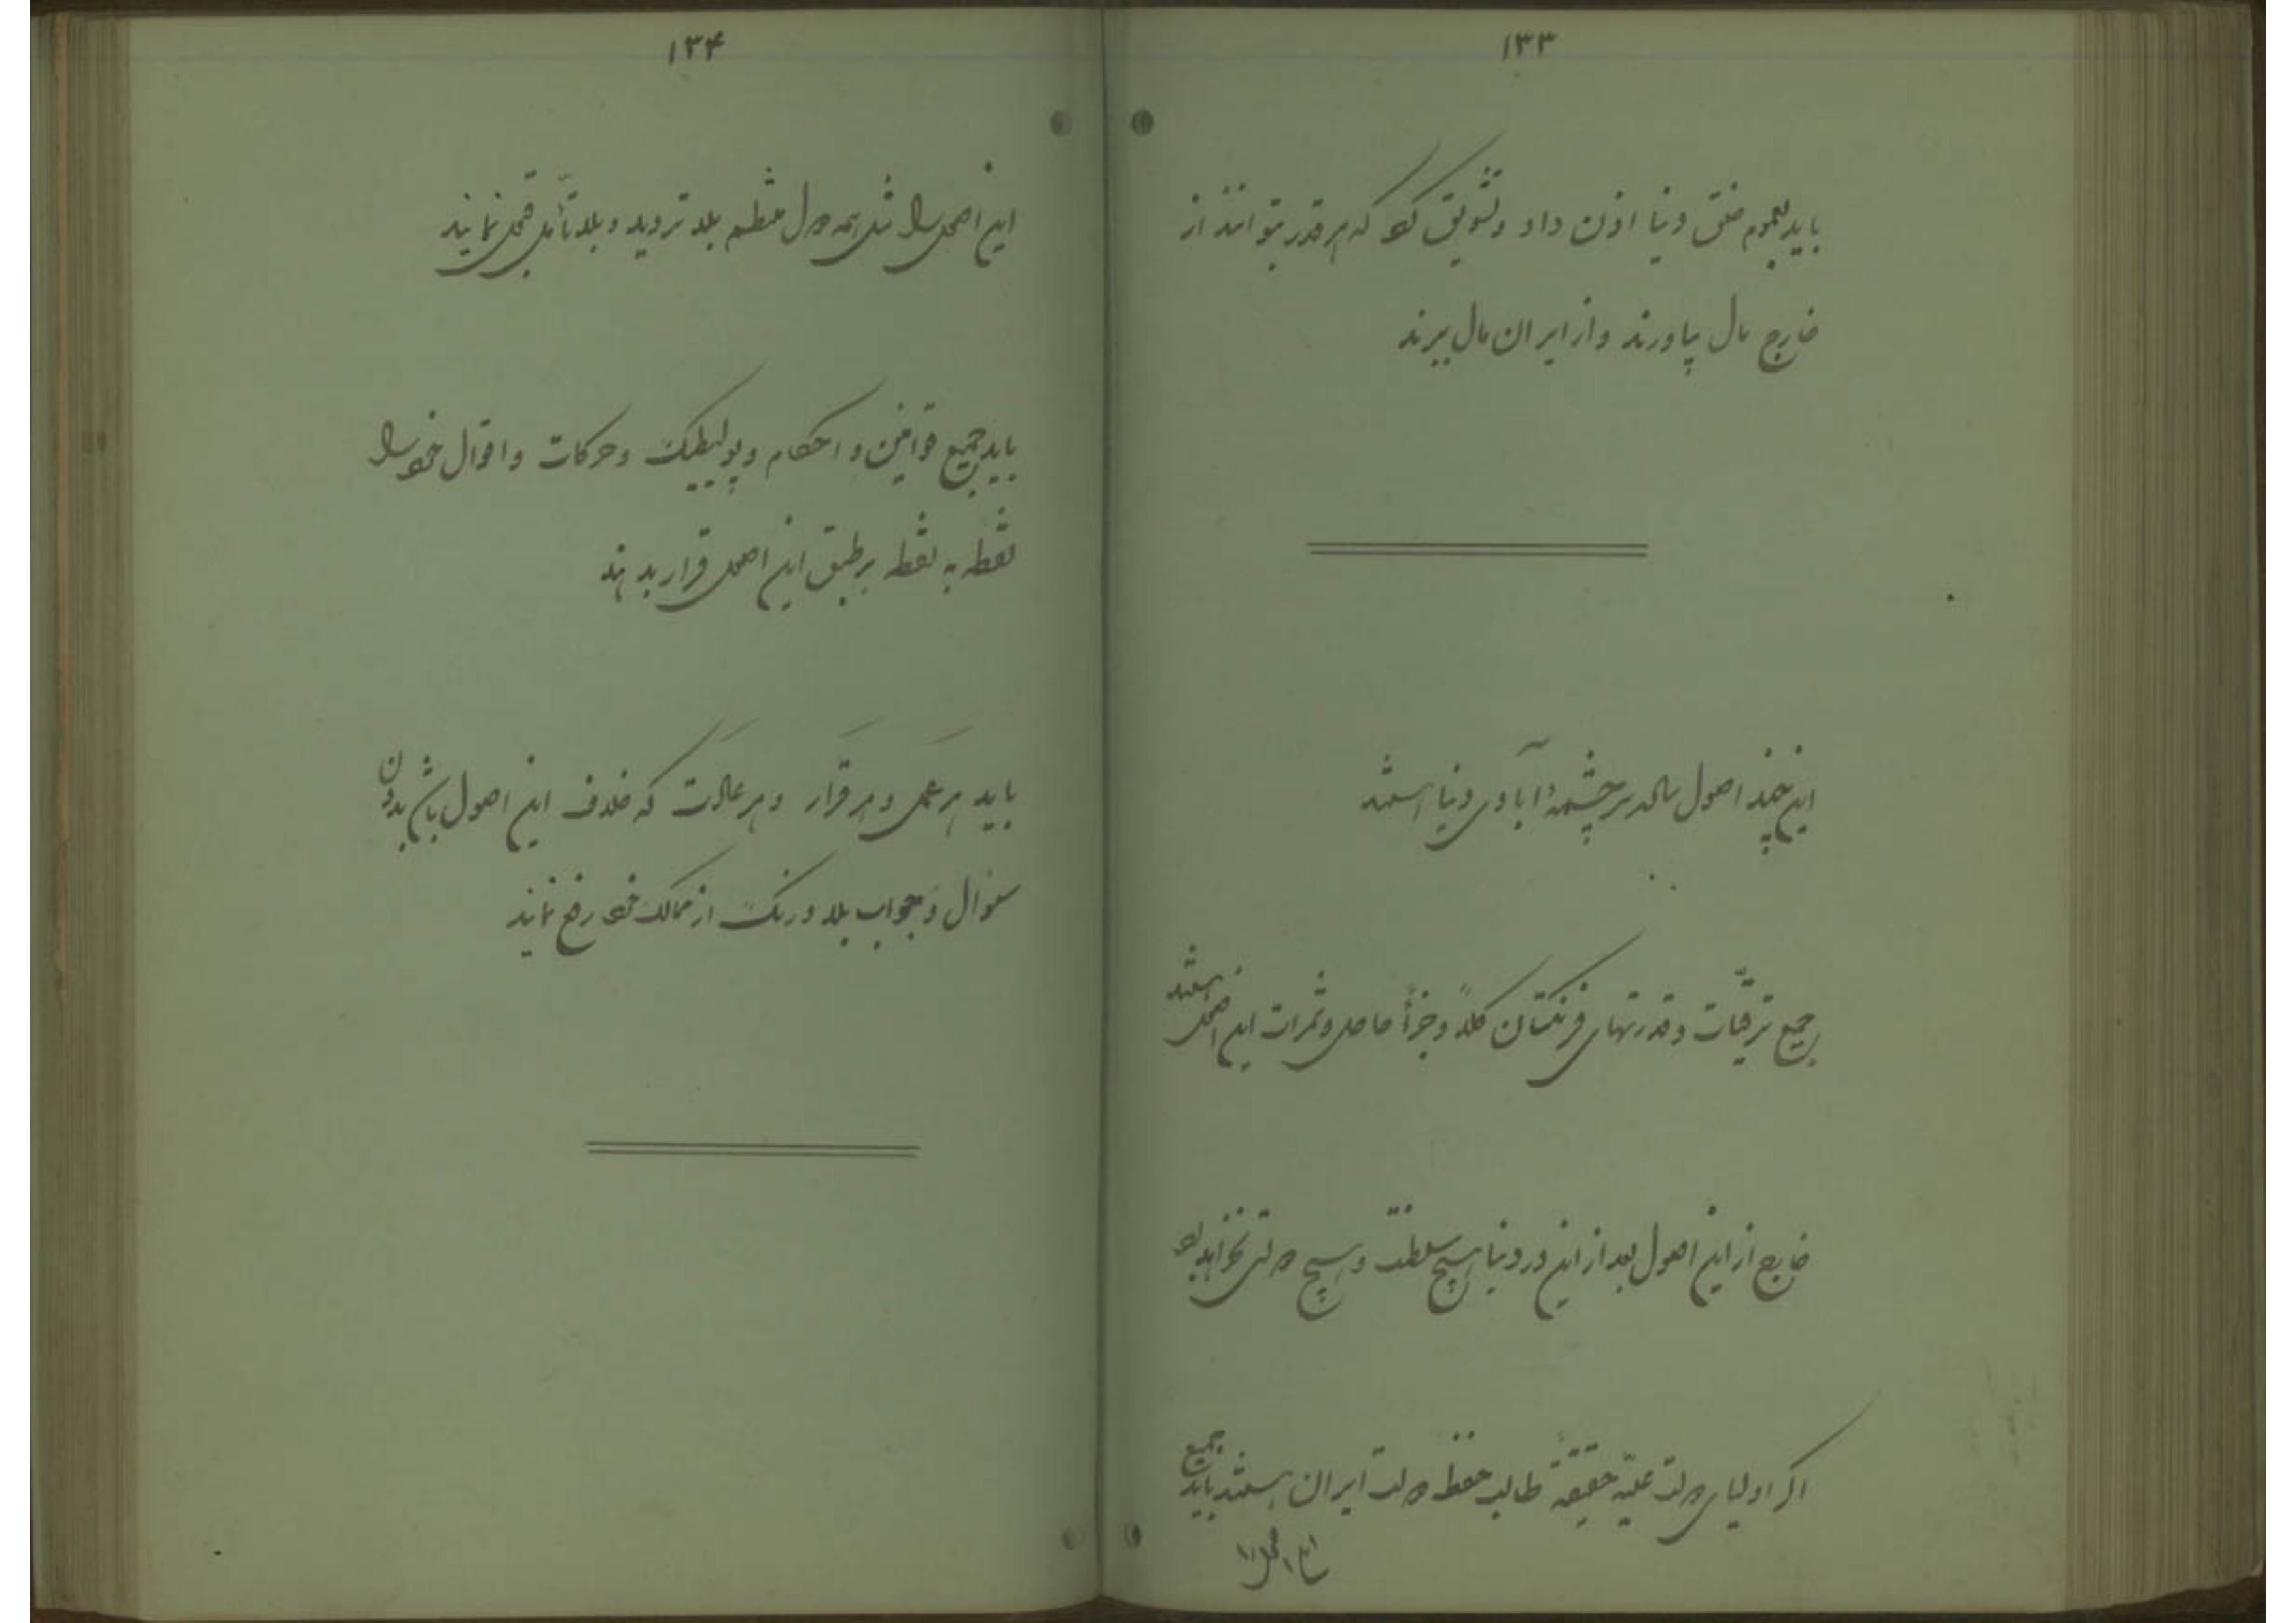 ۱۳۳
باید بعموم خلق دنیا اذن داد و تشویق کرد که هر قدر بتوانند از
خارج مال بیاورند و از ایران مال ببرند
این چند اصول بالا سرچشمهٔ آبادی دنیا هستند
جمیع ترقیّات و قدرتهای فرنگستان کلاً و جزأً حاصل و ثمرات این اصول هستند
خارج از این اصول بعد از این در دنیا هیچ سلطنت و هیچ دولتی نخواهد بود
اگر اولیای دولت علیّه حقیقةً طالب حفظ دولت ایران هستند باید جمیع
این اصول را
۱۳۴
این اصول را مثل همه دول منظم بلا تردید و بلا تأمّل قبول نمایند
باید جمیع قوانین و احکام و پولیطیک و حرکات و اقوال خود را
نقطه به نقطه بر طبق این اصول قرار بدهند
باید هر عمل و هر قرار و هر عادت که خلاف این اصول باشد بدون
سئوال و جواب بلا درنک از ممالک خود رفع نمایند